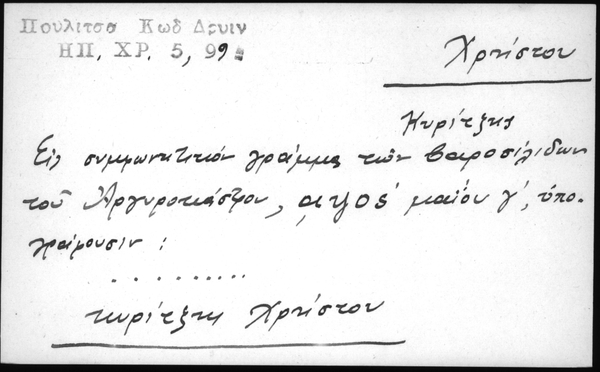 Πουλιτσα Κωδ Δρυιν
ΗΠ. ΧΡ. 5, 99
Χρήστου
Κυρίτζης
Εἰς συμφωνητικόν γράμμα τῶν βαροσιλιδων
τοῦ Ἀργυροκάστρου, αψοϛ' μαΐου γ', ὑπο-
γράφουσιν :
. . . . . . . . . .
κυρίτζης Χρήστου